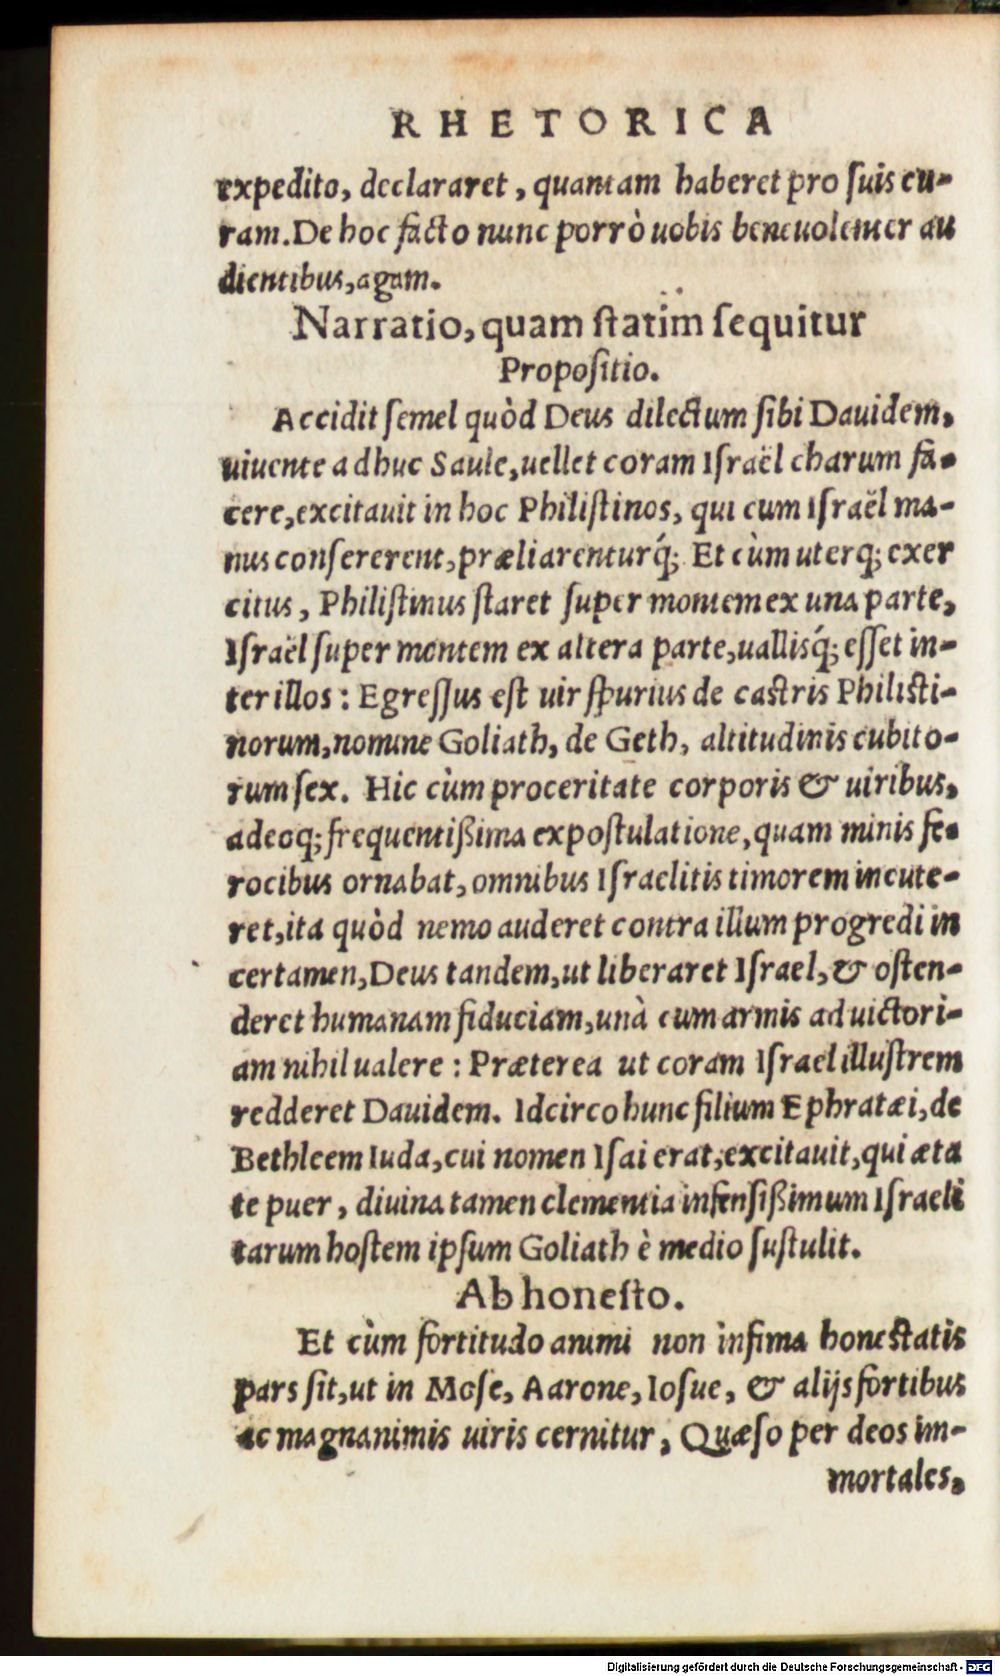 RHETORICA
expedito, declararet, quantam haberet pro ſuis cu-
ram. De hoc facto nunc porrò uobis beneuolenter au
dientibus, agam.
Narratio, quam ſtatim ſequitur
Propoſitio.
Accidit ſemel quòd Deus dilectum ſibi Dauidem,
uiuente adhuc Saule, uellet coram Iſraël charum fa-
cere, excitauit in hoc Philiſtinos, qui cum Iſraël ma-
nus conſererent, præliarenturq́; Et cùm uterq; exer
citus, Philiſtinus ſtaret ſuper montem ex una parte,
Iſraël ſuper montem ex altera parte, uallisq́; eſſet in-
ter illos: Egreſſus eſt uir ſpurius de caſtris Philiſti-
norum, nomine Goliath, de Geth, altitudinis cubito-
rum ſex. Hic cùm proceritate corporis & uiribus,
adeoq; frequentißima expoſtulatione, quam minis fe-
rocibus ornabat, omnibus Iſraelitis timorem incute-
ret, ita quòd nemo auderet contra illum progredi in
certamen, Deus tandem, ut liberaret Iſrael, & oſten-
deret humanam fiduciam, unà cum armis ad uictori-
am nihil ualere: Præterea ut coram Iſrael illuſtrem
redderet Dauidem. Idcirco hunc filium Ephratæi, de
Bethleem Iuda, cui nomen Iſai erat, excitauit, qui æta
te puer, diuina tamen clementia infenſißimum Iſraeli
tarum hoſtem ipſum Goliath è medio ſuſtulit.
Ab honeſto.
Et cùm fortitudo animi non infima honeſtatis
pars ſit, ut in Moſe, Aarone, Ioſue, & alijs fortibus
ac magnanimis uiris cernitur, Quæſo per deos im-
mortales,
Digitalisierung gefördert durch die Deutsche Forschungsgemeinschaft - DFG